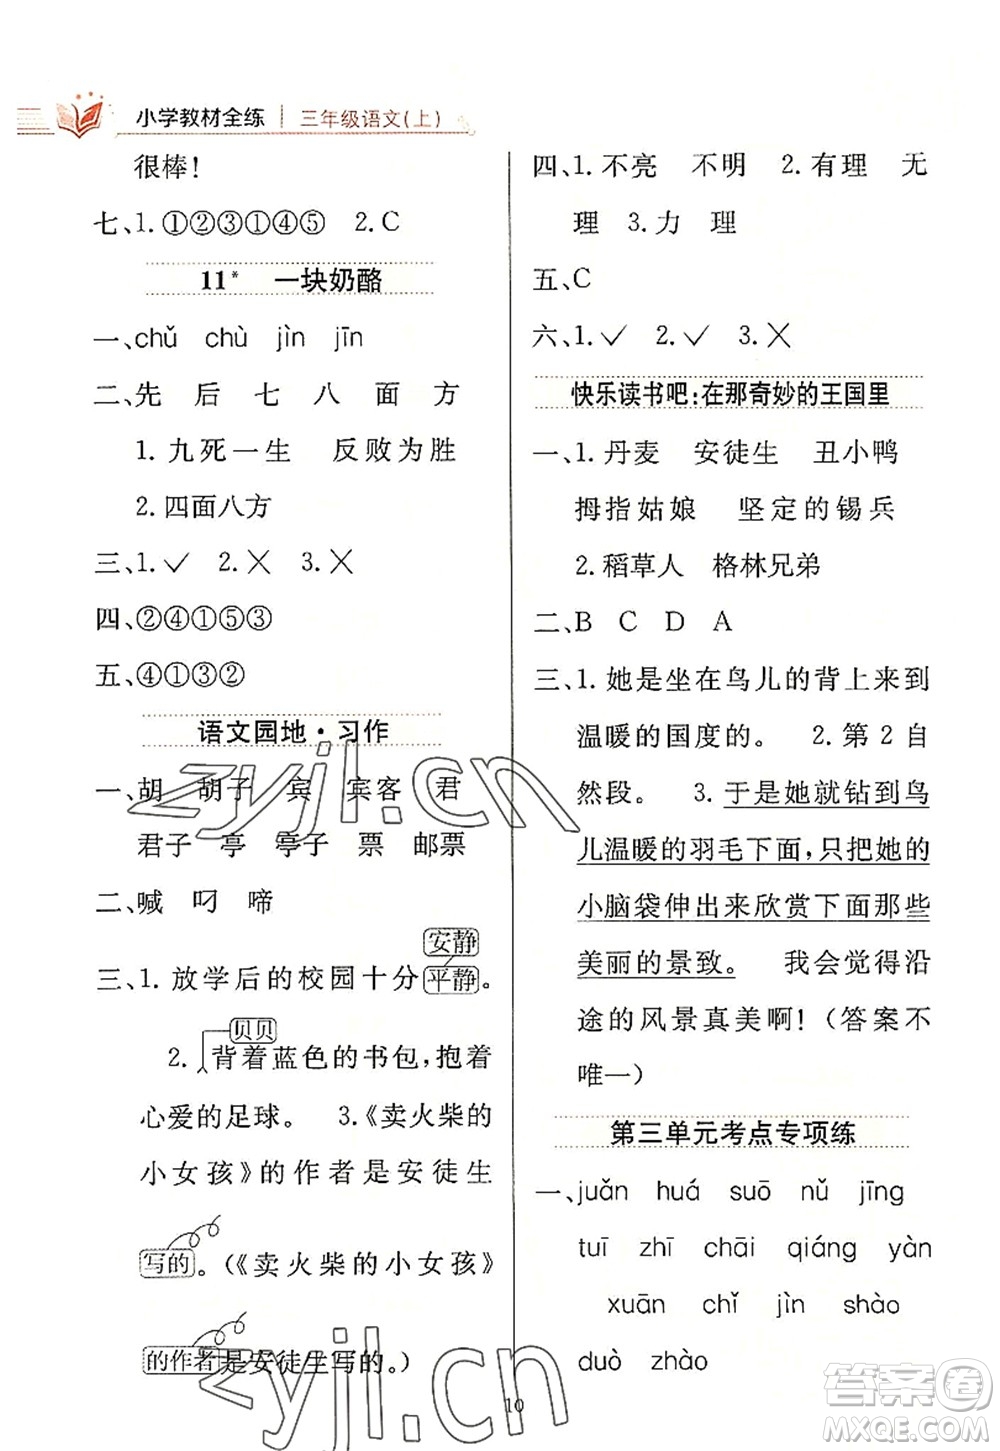 小学教材全练 三年级语文(上)
很棒!
七、1.①②③①④⑤ 2.C
11* 一块奶酪
一、chǔ chù jìn jīn
二、先 后 七 八 面 方
1.九死一生 反败为胜
2.四面八方
三、1.✓ 2.✕ 3.✕
四、②④①⑤③
五、④①③②
语文园地·习作
一、胡 胡子 宾 宾客 君
君子 亭 亭子 票 邮票
二、喊 叼 啼
安静
三、1.放学后的校园十分平静。
贝贝
2.背着蓝色的书包,抱着
心爱的足球。 3.《卖火柴的
小女孩》的作者是安徒生
写的。(《卖火柴的小女孩》
的作者是安徒生写的。)
四、1.不亮 不明 2.有理 无
理 3.力 理
五、C
六、1.✓ 2.✓ 3.✕
快乐读书吧:在那奇妙的王国里
一、1.丹麦 安徒生 丑小鸭
拇指姑娘 坚定的锡兵
2.稻草人 格林兄弟
二、B C D A
三、1.她是坐在鸟儿的背上来到
温暖的国度的。 2.第2自
然段。 3.于是她就钻到鸟
儿温暖的羽毛下面,只把她的
小脑袋伸出来欣赏下面那些
美丽的景致。 我会觉得沿
途的风景真美啊!(答案不
唯一)
第三单元考点专项练
一、juǎn huá suō nǔ jīng
tuī zhī chāi qiáng yàn
xuān chǐ jìn shào
duò zhào
10
zyjl.cn
zyjl.cn
答案圈
MXQE.COM